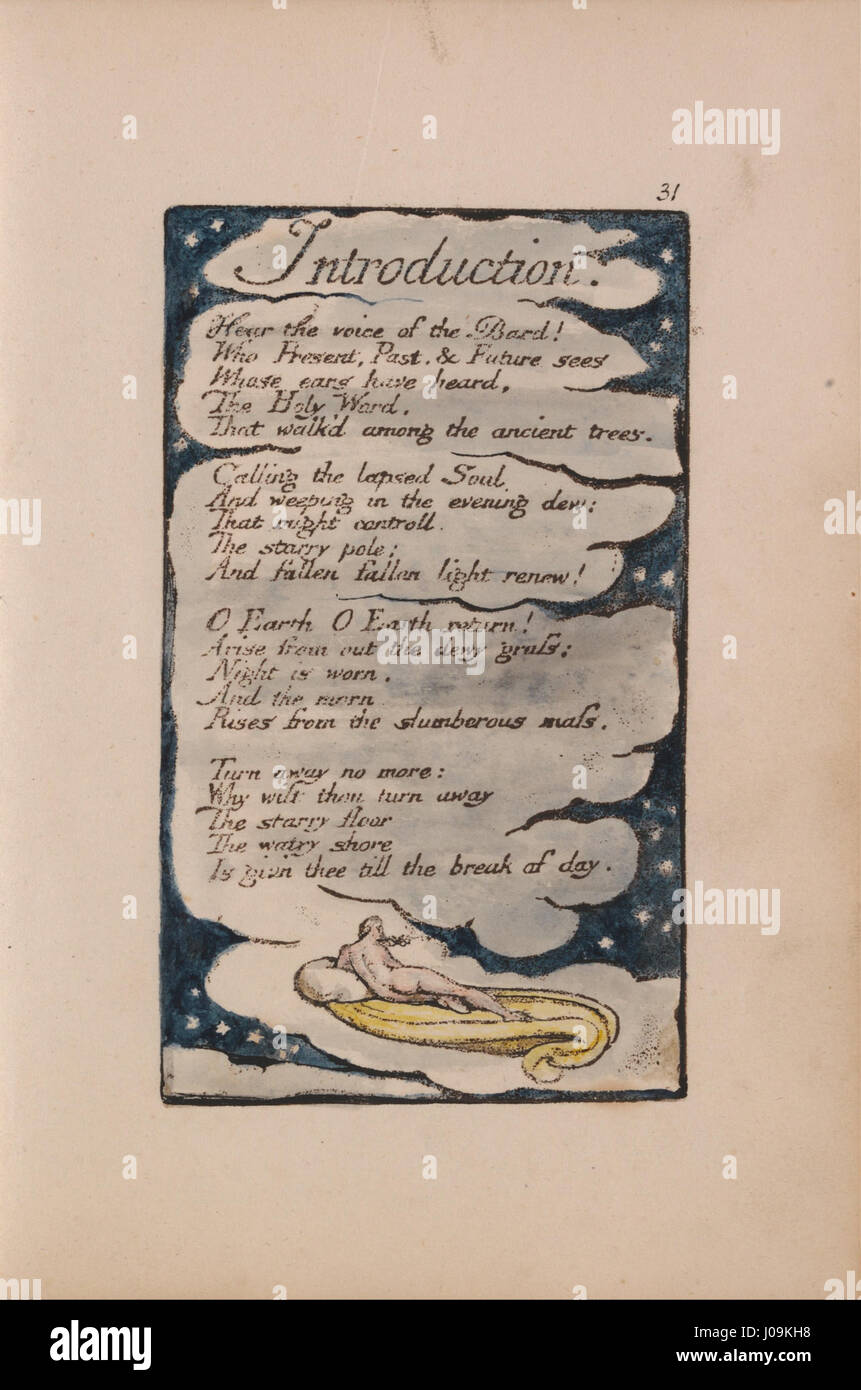 31
Introduction.
Hear the voice of the Bard!
Who Present, Past, & Future sees
Whose ears have heard,
The Holy Word,
That walk'd among the ancient trees.
Calling the lapsed Soul
And weeping in the evening dew:
That might controll.
The starry pole;
And fallen fallen light renew!
O Earth O Earth return!
Arise from out the dewy graſs;
Night is worn,
And the morn
Rises from the slumberous maſs.
Turn away no more:
Why wilt thou turn away
The starry floor
The watry shore
Is giv'n thee till the break of day.
a alamy
alamy
Image ID: J09KH8
www.alamy.com